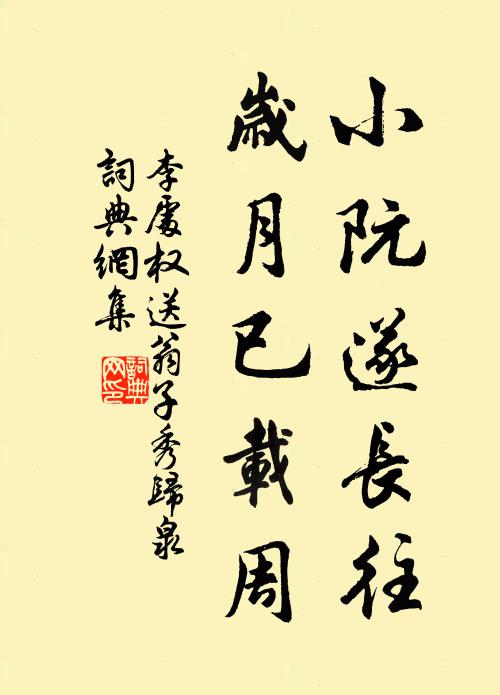 小阮遂長往
歲月已載周
李處权送翁子秀歸泉
詞典網集
詞典
网印